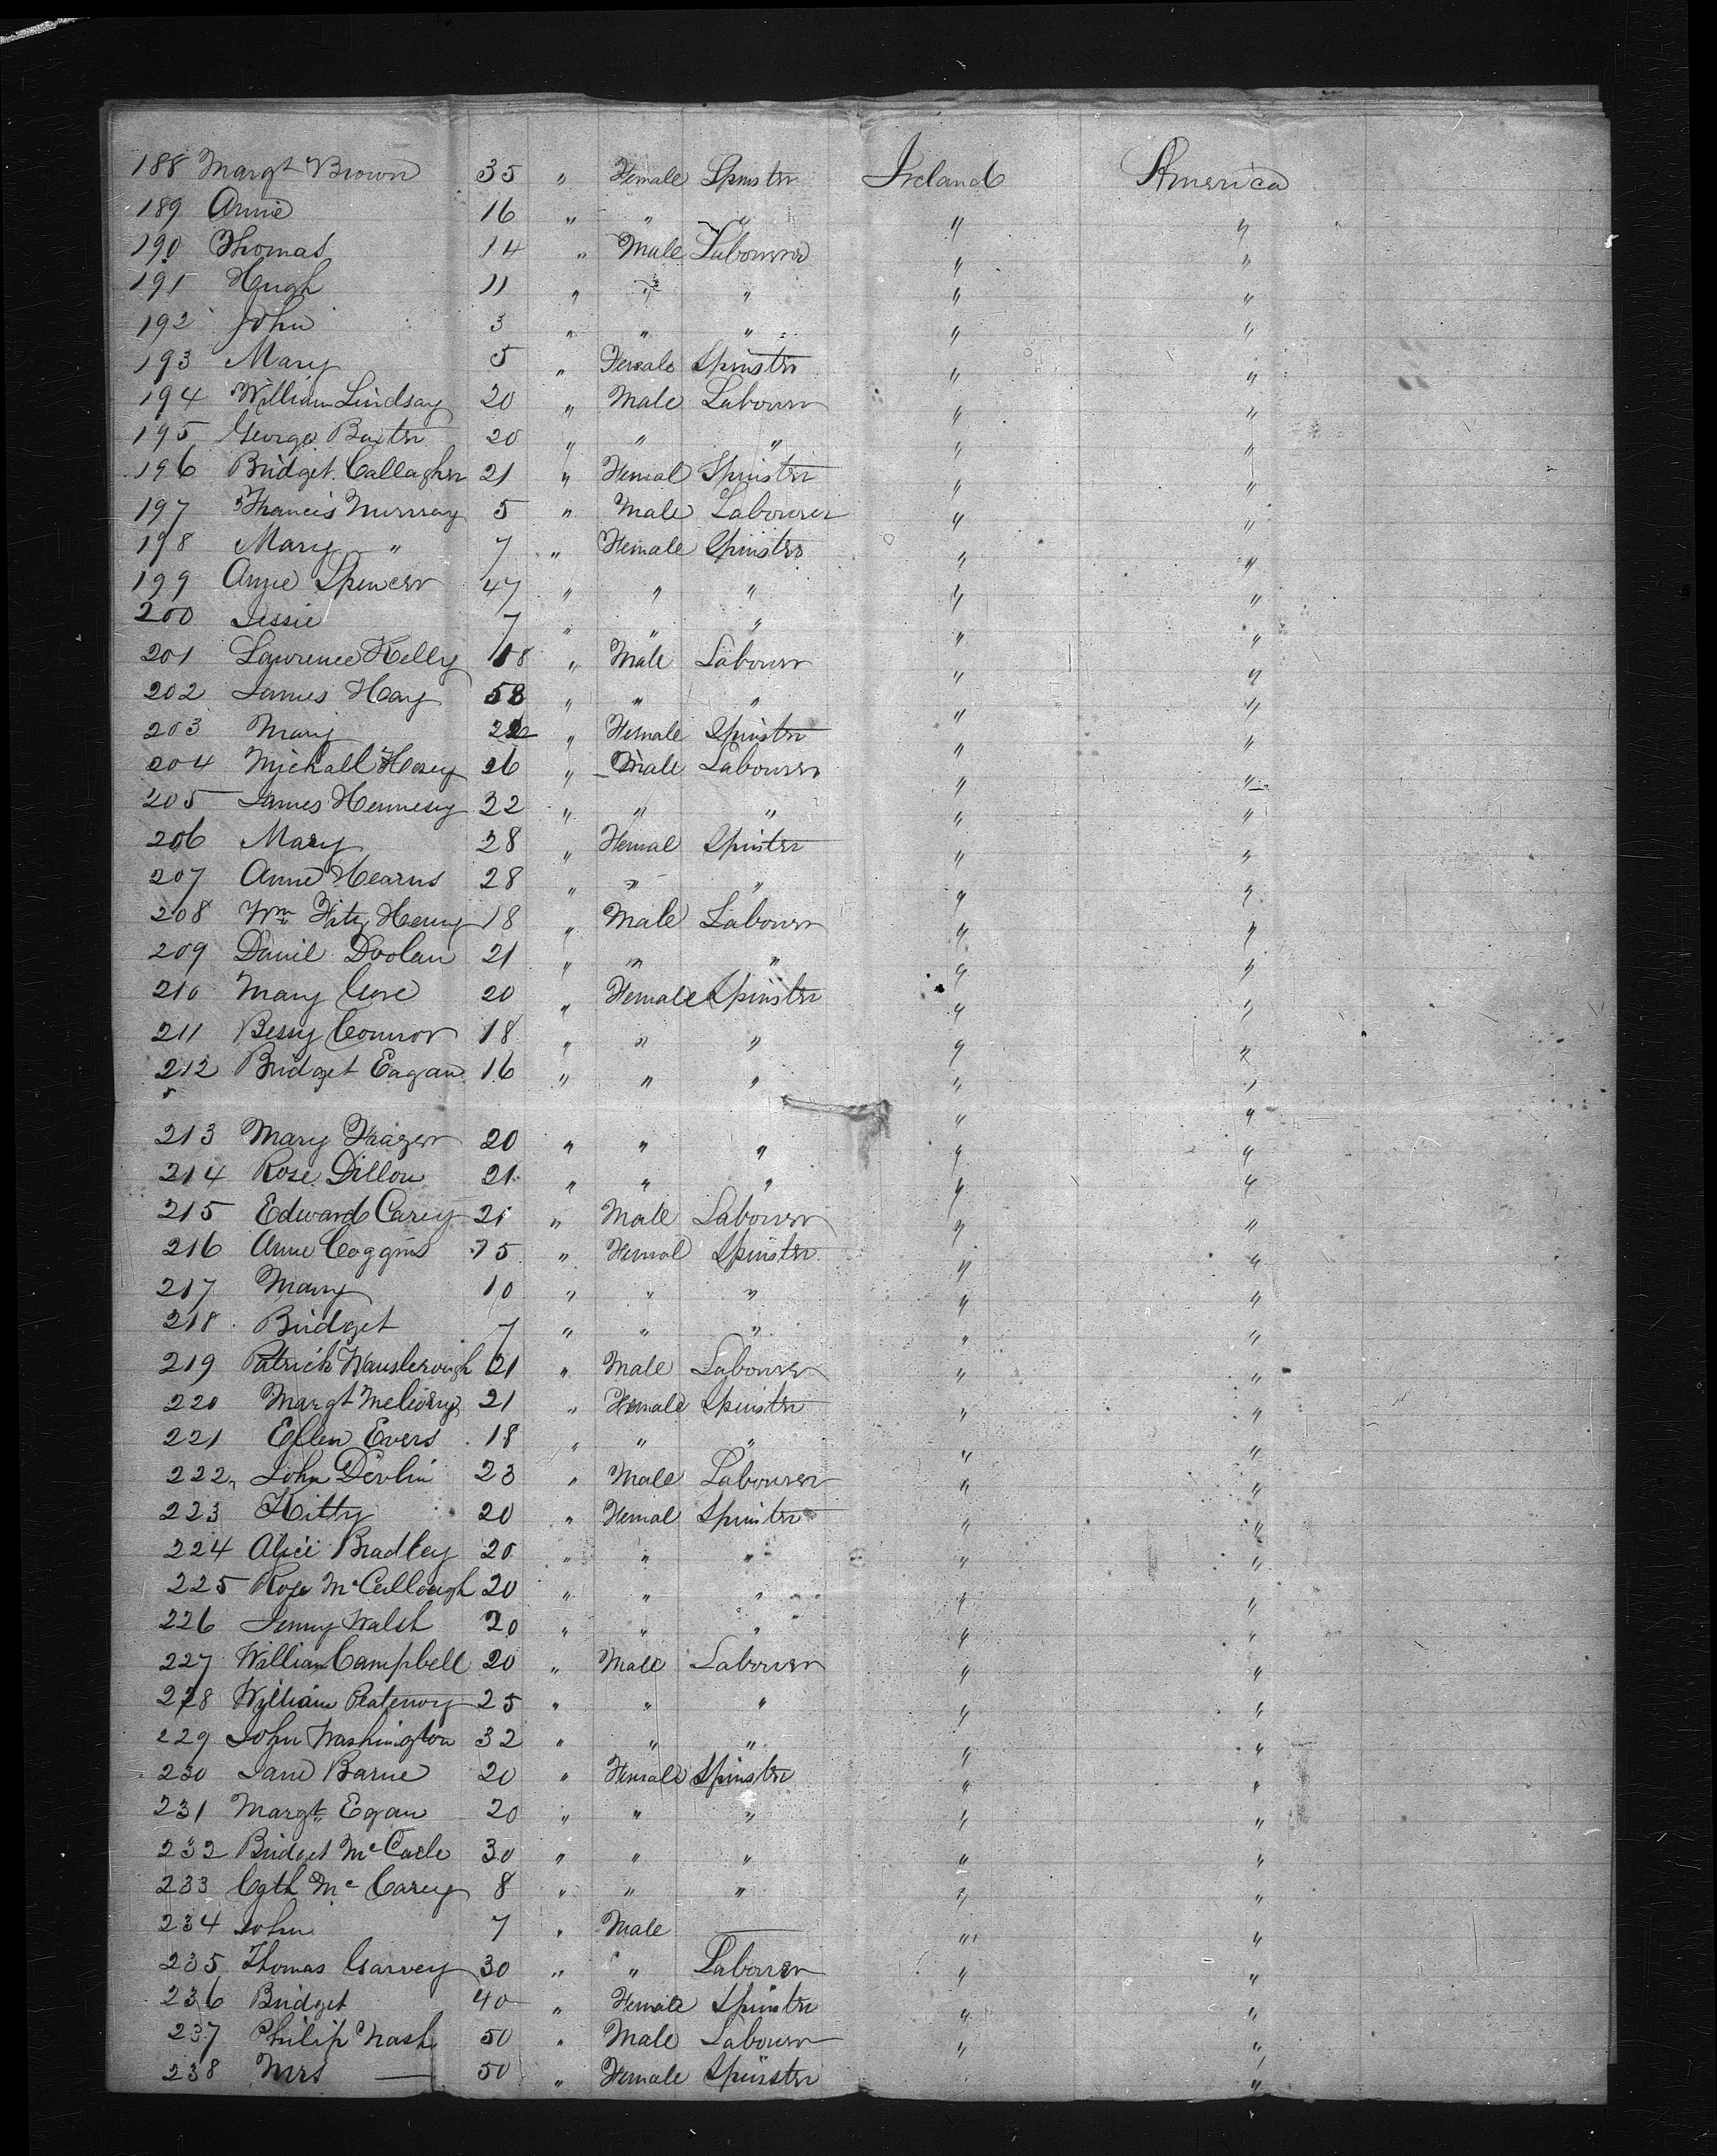 188 Margt Brown 35 " Female Spinster Ireland America
189 Annie 16 " " " " "
190 Thomas 14 " Male Labourer " "
191 Hugh 11 " " " " "
192 John 3 " " " " "
193 Mary 5 " Female Spinster " "
194 William Lindsay 20 " Male Labourer " "
195 George Baxter 20 " " " " "
196 Bridget Callagher 21 " Femal Spinster " "
197 Francis Murray 5 " Male Labourer " "
198 Mary " 7 " Female Spinster " "
199 Anne Spencer 47 " " " " "
200 Jessie 7 " " " " "
201 Lawrence Kelly 18 " Male Labourer " "
202 James Hay 58 " " " " "
203 Mary " Female Spinster " "
204 Michall 26 " Male Labourer " "
205 James Hennesy 22 " " " " "
206 Mary 28 " Femal Spinster " "
207 Anne Hearns 28 " " " " "
208 Wm Fitz Henry 18 " Male Labourer " "
209 Daniel Doolan 21 " " " " "
210 Mary 20 " Female Spinster " "
211 Bessy Connor 18 " " " " "
212 Bridget Eagan 16 " " " " "
" "
213 Mary Frazer 20 " " " " "
214 Rose Dillon 21 " " " " "
215 Edward Carey 21 " Male Labourer " "
216 Anne Coggins " Femal Spinster " "
217 Mary 10 " " " " "
218 Bridget 7 " " " " "
219 Patrick 21 " Male Labourer " "
220 Margt 21 " Female Spinster " "
221 Ellen Evers 18 " " " " "
222 John Devlin 23 " Male Labourer " "
223 Kitty 20 " Femal Spinster " "
224 Alice Bradley 20 " " " " "
225 Rose McCullough 20 " " " " "
226 Jenny Walsh 20 " " " " "
227 William Campbell 20 " Male Labourer " "
228 William 25 " " " " "
229 John Washington 32 " " " " "
230 Jane Barne 20 " Female Spinster " "
231 Margt Egan 20 " " " " "
232 Bridget 30 " " " " "
233 Cath Mc Carey 8 " " " " "
234 John 7 " Male — " "
235 Thomas Garvey 30 " " Labourer " "
236 Bridget 40 " Female Spinster " "
237 Philip Nash 50 " Male Labourer " "
238 Mrs — 50 " Female Spinster "